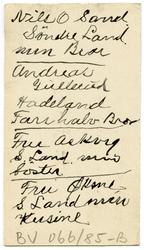 Nils O Sand
Söndre Land
min Bror
Andreas
Gullerud
Hadeland
Farr halv Bror
Fru Askvig
S. Land min
Søster
Fru
S Land min
Kusine
BV 066/85-B